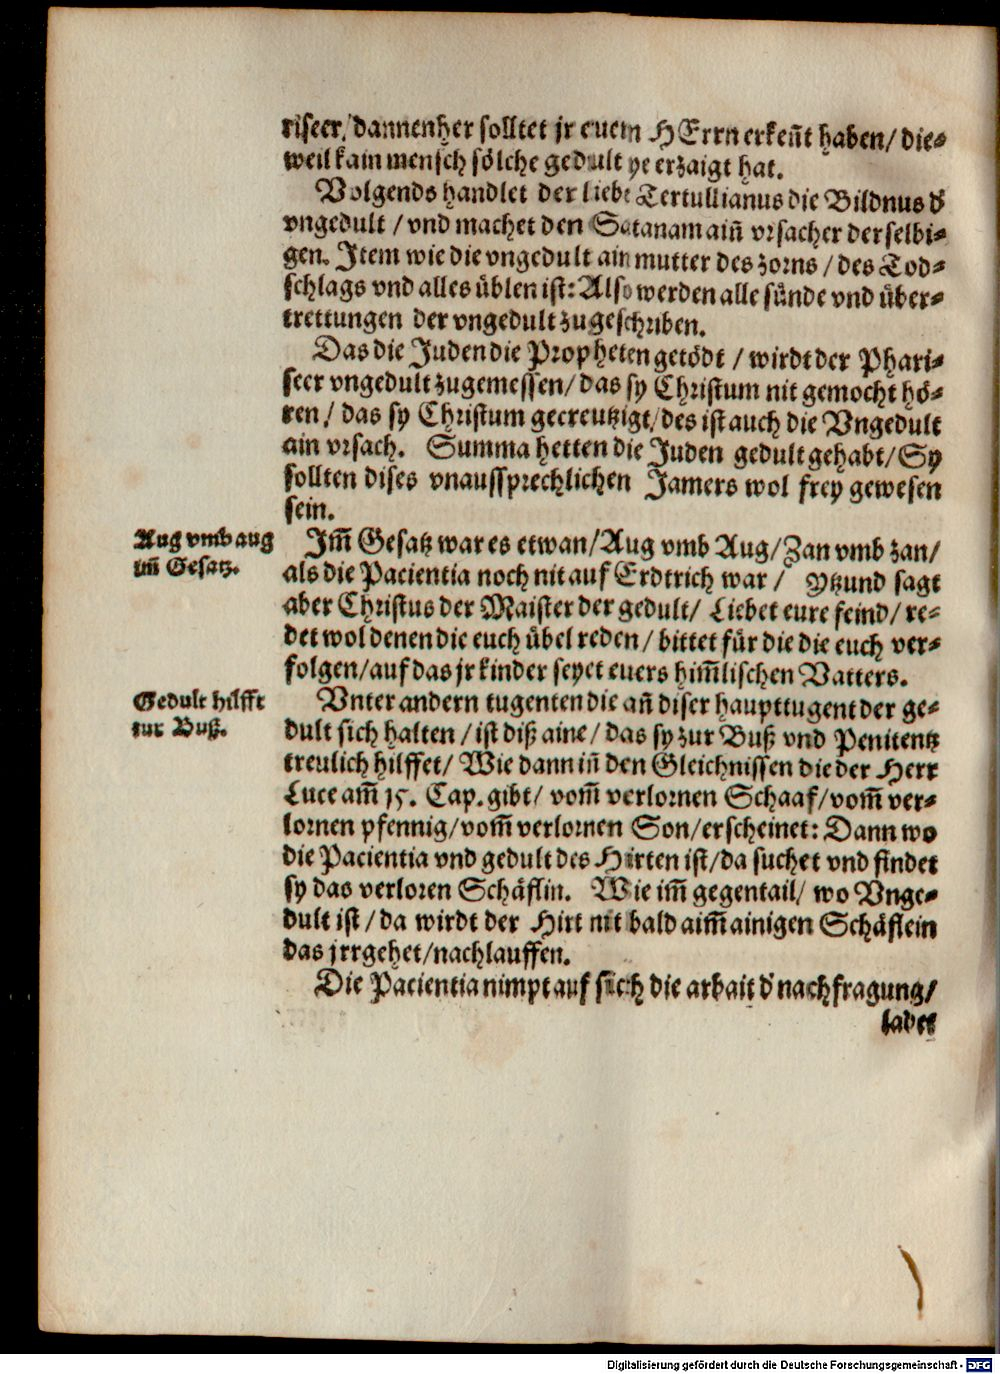 riseer/ dannenher solltet jr euern HErrn erkeñt haben/ die⸗
weil kain mensch sölche gedult ye erzaigt hat.
Volgends handlet der liebe Tertullianus die Bildnus d'
vngedult / vnd machet den Satanam aiñ vrsacher derselbi⸗
gen. Item wie die vngedult ain mutter des zorns / des Tod⸗
schlags vnd alles üblen ist: Also werden alle sünde vnd über⸗
trettungen der vngedult zugeschriben.
Das die Juden die Propheten getödt / wirdt der Phari⸗
seer vngedult zugemessen/ das sy Christum nit gemocht hö⸗
ren/ das sy Christum gecreutzigt/ des ist auch die Vngedult
ain vrsach. Summa hetten die Juden gedult gehabt/ Sy
sollten dises vnaussprechlichen Jamers wol frey gewesen
sein.
Aug vmb aug
im̃ Gesatz.
Im̃ Gesatz war es etwan/ Aug vmb Aug/ Zan vmb zan/
als die Pacientia noch nit auf Erdtrich war / Ytzund sagt
aber Christus der Maister der gedult/ Liebet eure feind/ re⸗
det wol denen die euch übel reden/ bittet für die die euch ver⸗
folgen/ auf das jr kinder seyet euers him̃lischen Vatters.
Gedult hilfft
zur Buß.
Vnter andern tugenten die an̄ diser haupttugent der ge⸗
dult sich halten / ist diß aine / das sy zur Buß vnd Penitentz
treulich hilffet/ Wie dann in̄ den Gleichnissen die der Herr
Luce am̃ 15. Cap. gibt/ vom̃ verlornen Schaaf/ vom̃ ver⸗
lornen pfennig/ vom̃ verlornen Son/ erscheinet: Dann wo
die Pacientia vnd gedult des Hirten ist/ da suchet vnd findet
sy das verloren Schäflin. Wie im̃ gegentail/ wo Vnge⸗
dult ist / da wirdt der Hirt nit bald aim̃ ainigen Schäflein
das jrrgehet/ nachlauffen.
Die Pacientia nimpt auf sich die arbait d' nachfragung/
ladet
Digitalisierung gefördert durch die Deutsche Forschungsgemeinschaft - DFG